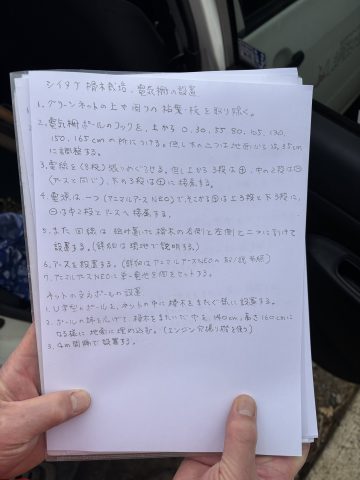 シイタケ榾木栽培、電気柵の設置
1. グリーンネットの上や周りの枯葉・枝を取り除く。
2. 電気柵ポールのフックを、上から 0, 30, 55 80, 105, 130,
150, 165cm の所につける。但し下の二つは地面から15, 35cm
に調整する。
3. 電線を(8段)張りめぐらせる。但し上から3段は⊕、中の2段は⊖
(アースと同じ)、下の3段は⊕に接続する。
4. 電源は一つ(アニマルアースNEO)でそこから⊕は上3段と下3段に、
⊖は中2段とアースへ接続する。
5. また回線は 榾木の右側と左側と二つに分けて
設置する。(詳細は現地で説明する)
6. アースを設置する。(詳細はアニマルアースNEOの 参照)
7. アニマルアースNEOに単一電池を個をセットする。
ネットの支えポールの設置
1. U字型のポールを、ネットの中に榾木をまたぐ様に設置する。
2. ポールの姉を広げて、榾木をまたいだ 巾を、140cm、高さ160cmに
なる様に 地面に埋め込む。(エンジン穴掘り機を使う)
3. 4m間隔で設置する。